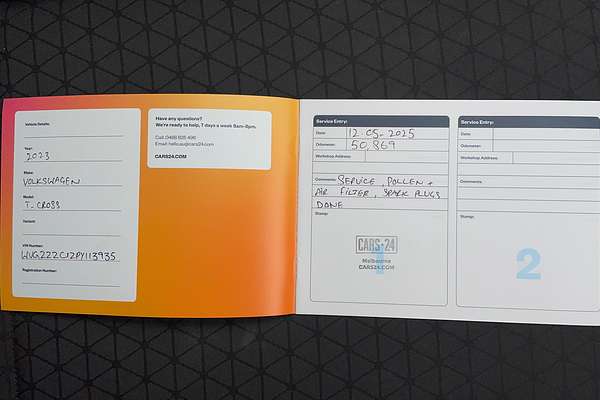 Vehicle Details:
Year:
2023
Make:
VOLKSWAGEN
Model:
T. CROSS
Variant:
VIN Number:
Registration Number:
Have any questions?
We're ready to help, 7 days a week 9am–8pm.
CARS24.COM
Service Entry:
Date: 12.05.2025
Odometer: 50,869
Workshop Address:
Comments: SERVICE, POLLEN +
AIR FILTER, SPARK PLUGS
DONE
Stamp:
1
CARS24
Melbourne
CARS24.COM
Service Entry:
Date:
Odometer:
Workshop Address:
Comments:
Stamp:
2